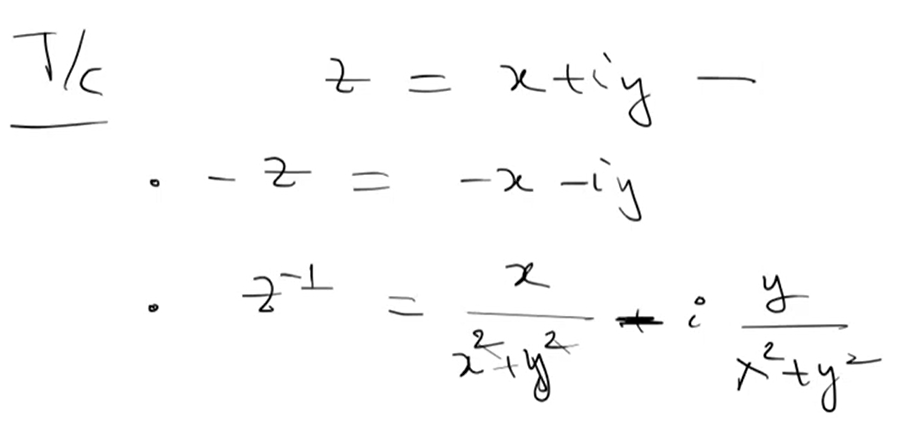 T/c z = x+iy —
· -z = -x -iy
· z⁻¹ = x/(x²+y²) - i y/(x²+y²)